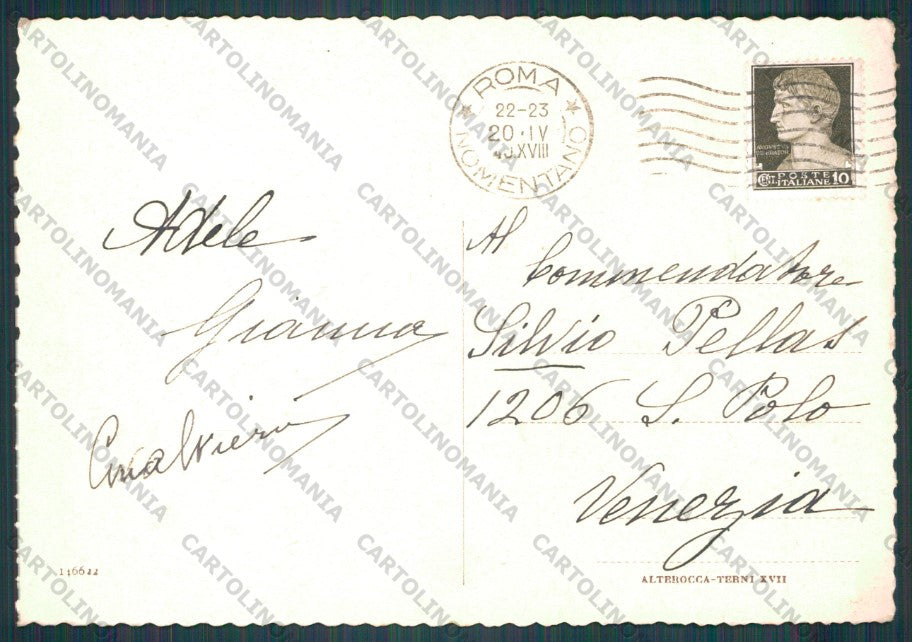 ROMA
22-23
20·IV
40.XVIII
NOMENTANO
POSTE
CENT. ITALIANE 10
Adele
Gianna
Al
Commendatore
Silvio Pellas
1206 S. Polo
Venezia
116622
ALTEROCCA-TERNI XVII
CARTOLINOMANIA